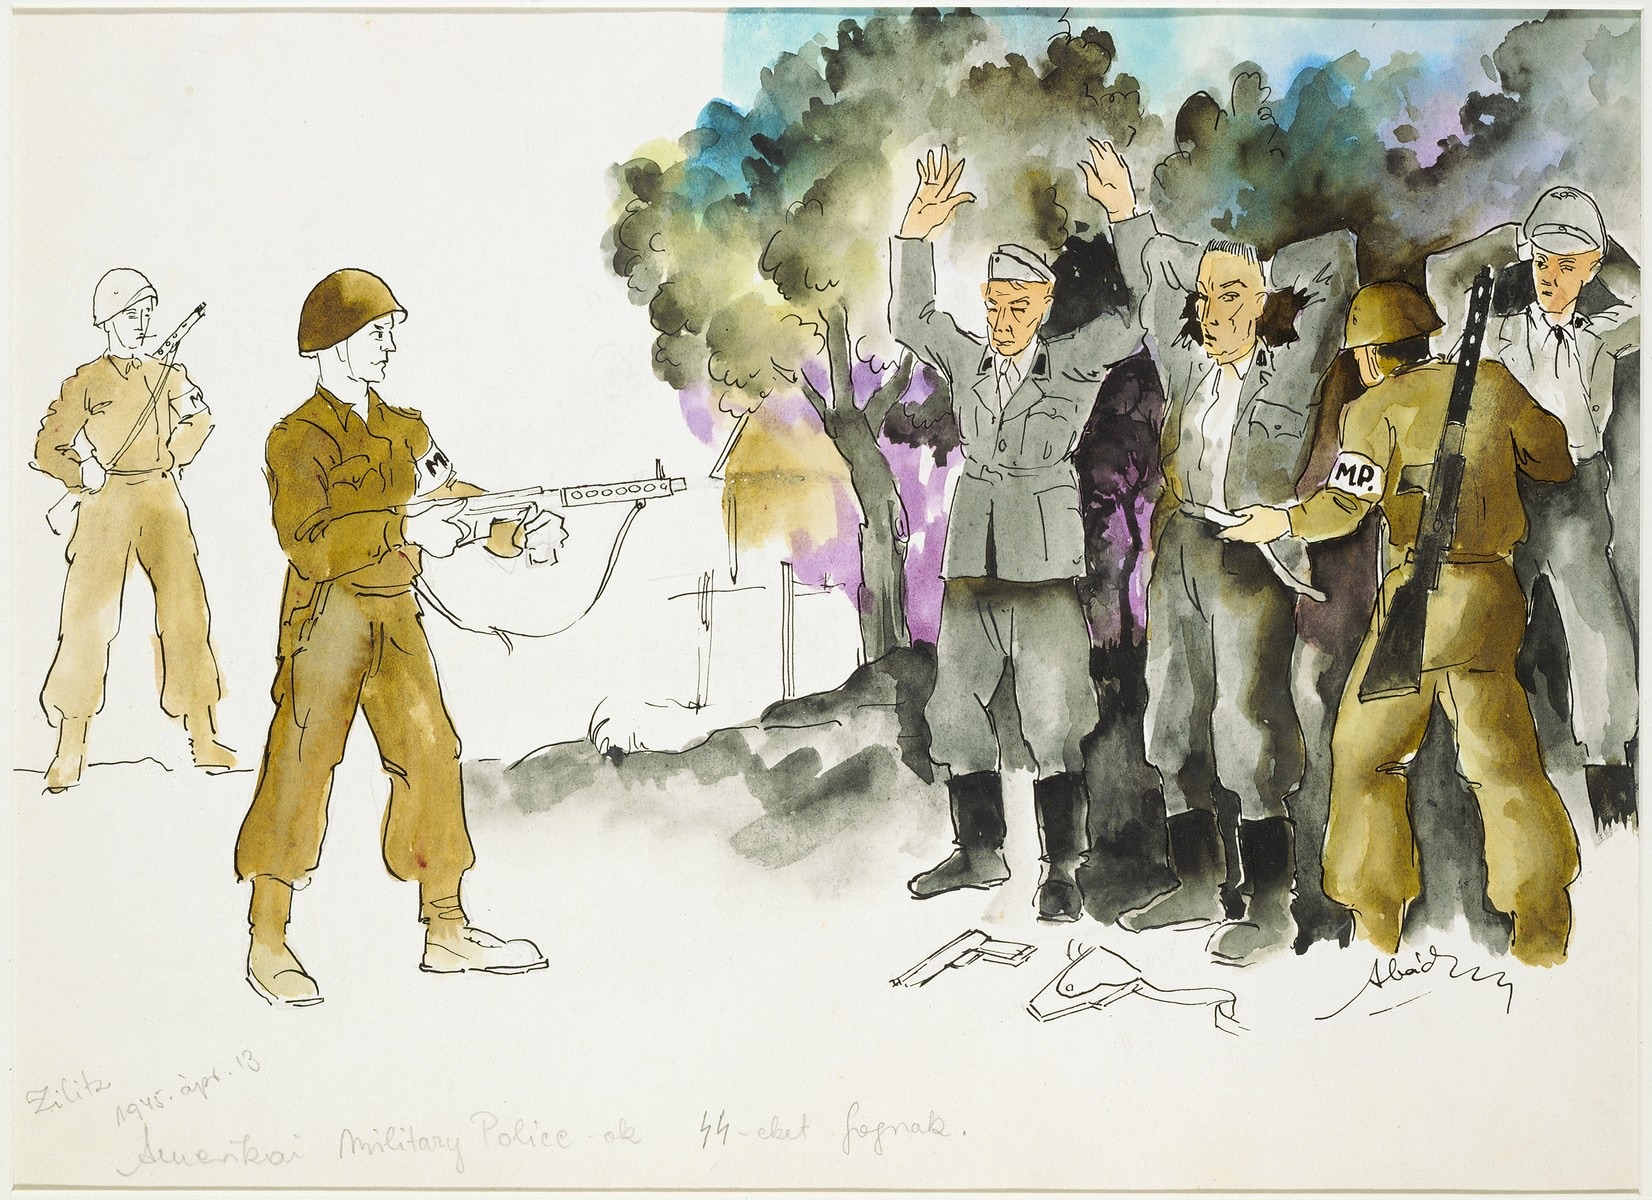 M
M
M.P.
Abády
Zilitz
1945. ápr. 13
Amerikai Military Police-ok SS-eket fognak.